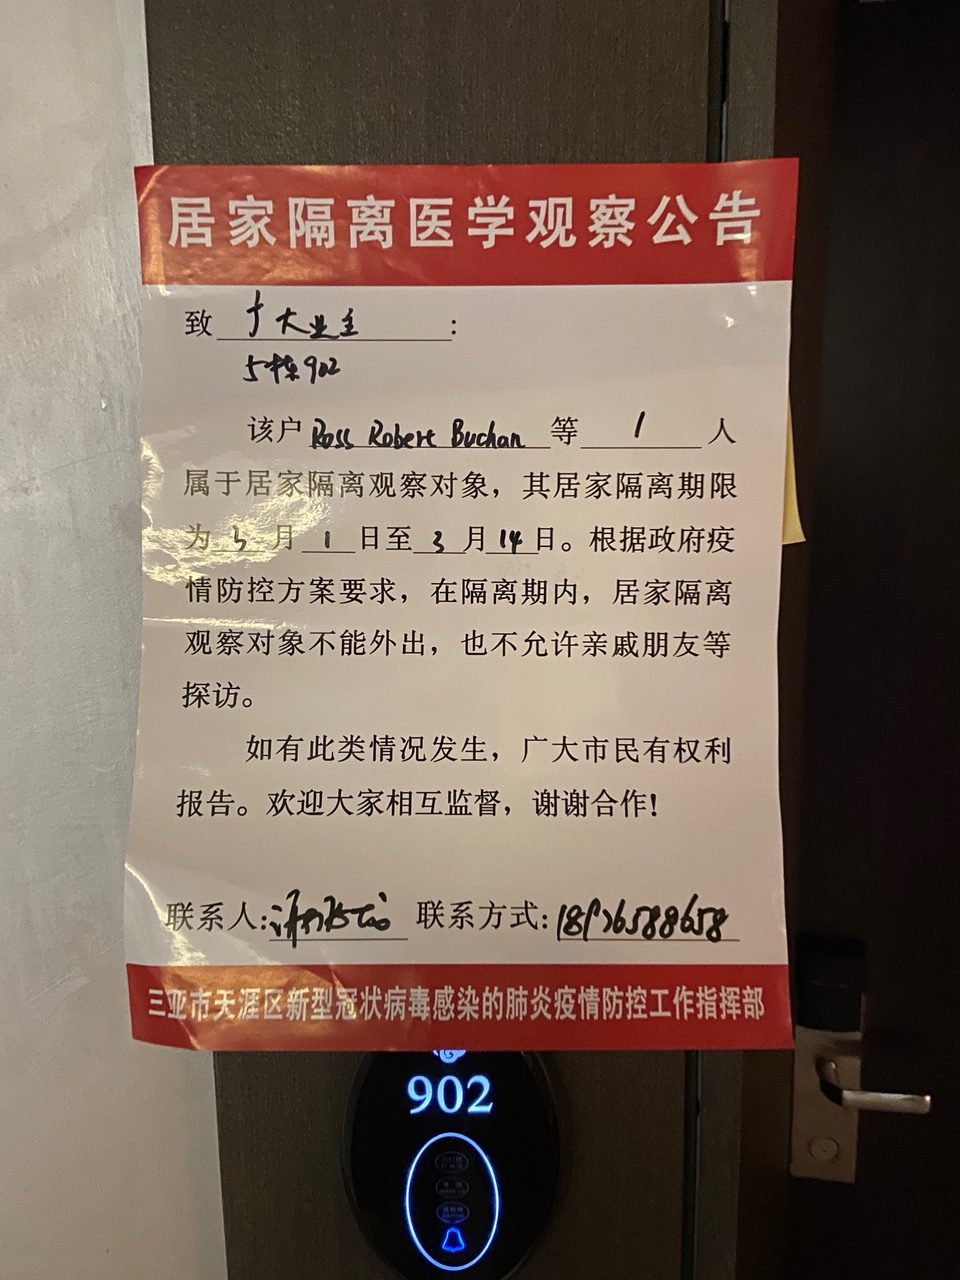 居家隔离医学观察公告
致 广大业主 :
5栋902
该户 Ross Robert Buchan 等 1 人
属于居家隔离观察对象，其居家隔离期限
为 3 月 1 日至 3 月 14 日。根据政府疫
情防控方案要求，在隔离期内，居家隔离
观察对象不能外出，也不允许亲戚朋友等
探访。
如有此类情况发生，广大市民有权利
报告。欢迎大家相互监督，谢谢合作!
联系人: 联系方式:
三亚市天涯区新型冠状病毒感染的肺炎疫情防控工作指挥部
902